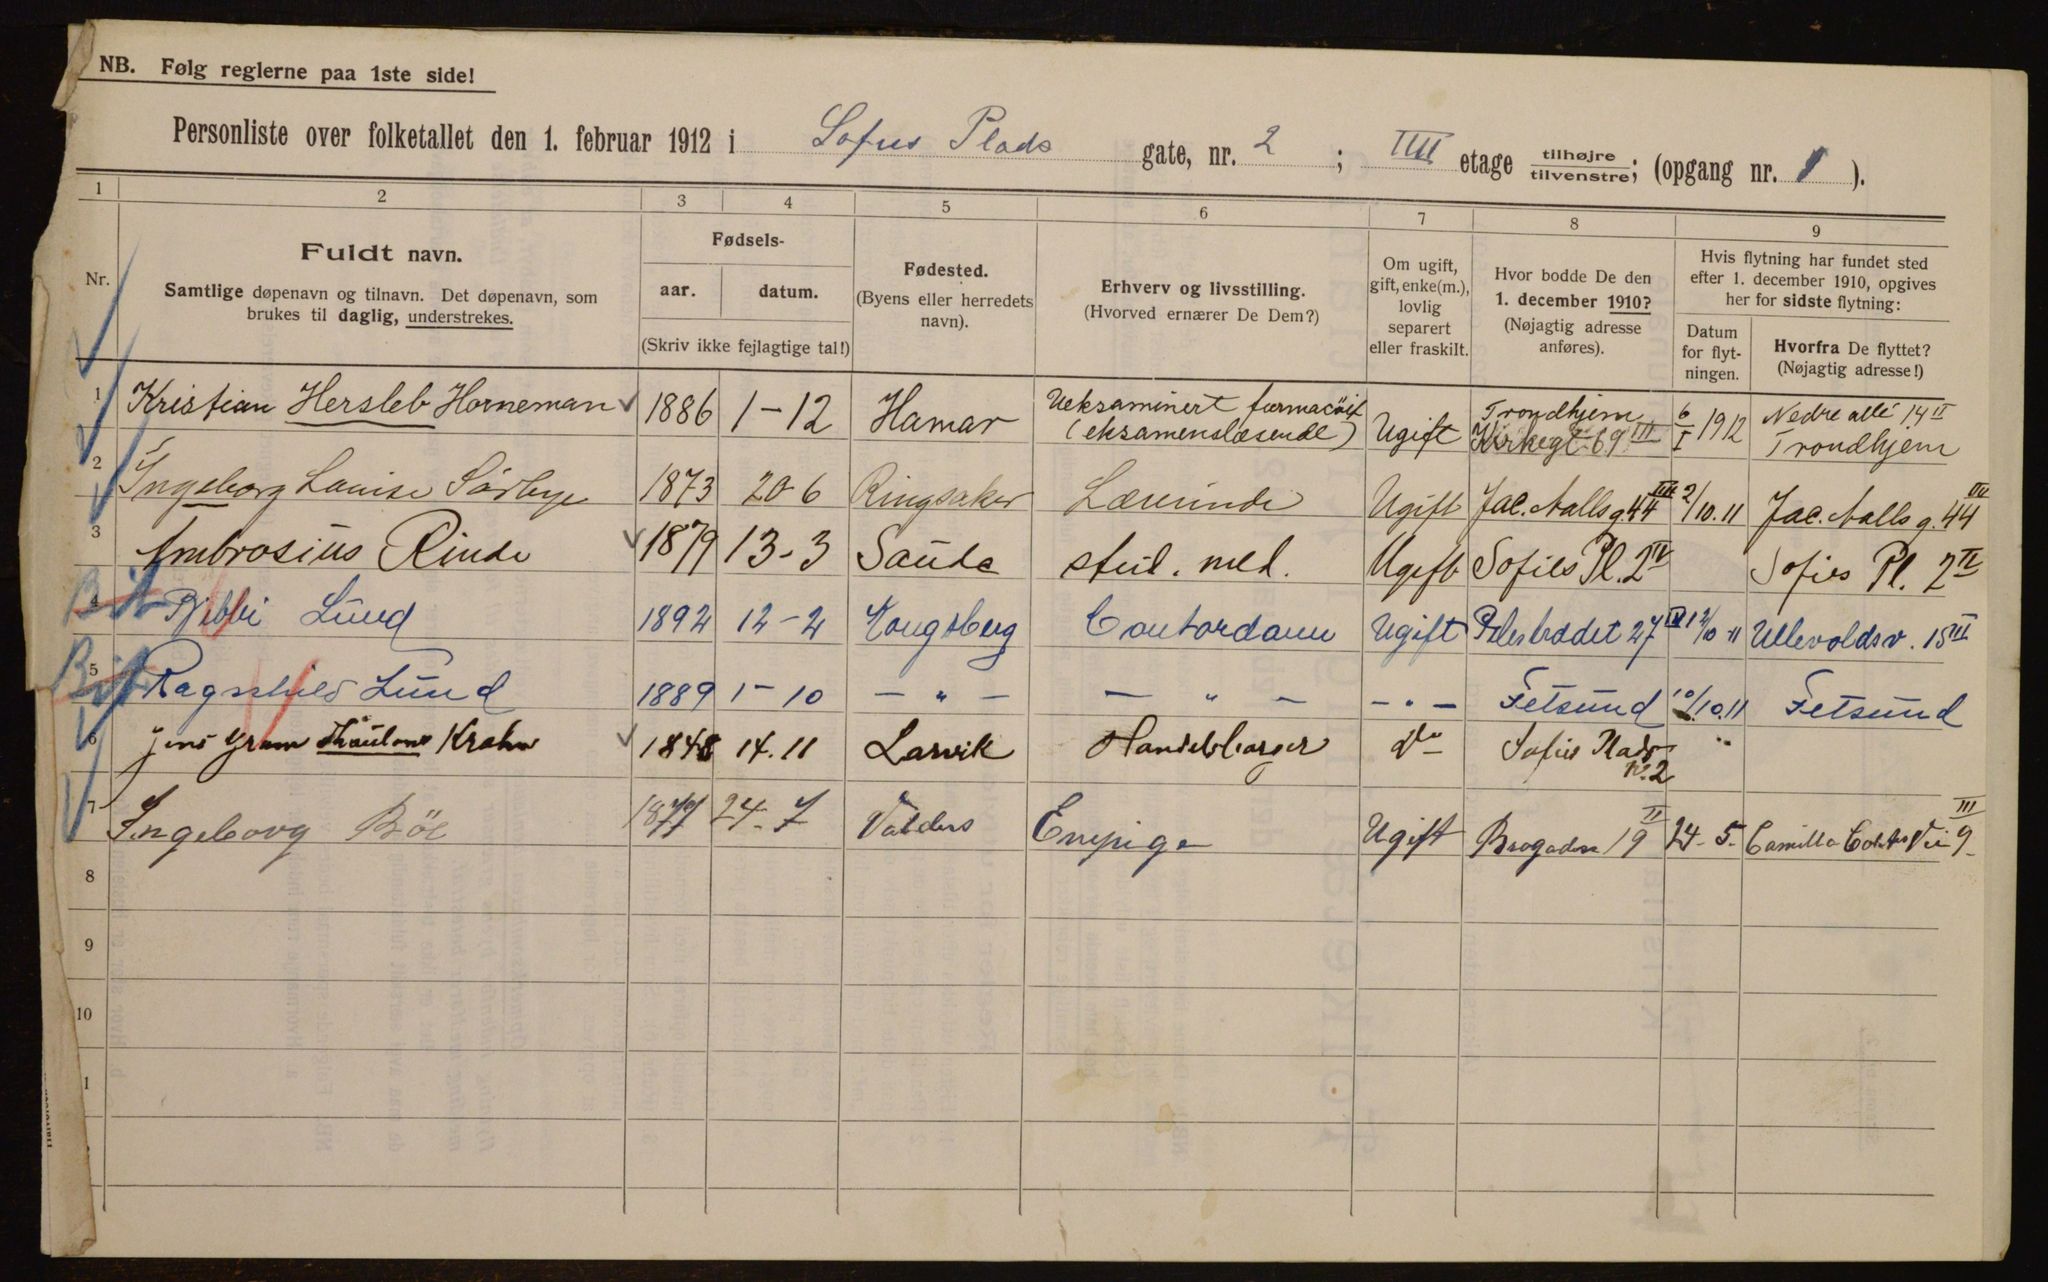 NB. Følg reglerne paa 1ste side!
Personliste over folketallet den 1. februar 1912 i Sofus Plads gate, nr. 2 ; IIII etage tilhøjre tilvenstre; (opgang nr. 1 ).
1 2 3 4 5 6 7 8 9
Nr.
Fuldt navn.
Samtlige døpenavn og tilnavn. Det døpenavn, som
brukes til daglig, understrekes.
Fødsels-
aar. datum.
(Skriv ikke fejlagtige tal!)
Fødested.
(Byens eller herredets
navn).
Erhverv og livsstilling.
(Hvorved ernærer De Dem?)
Om ugift,
gift, enke(m.),
lovlig
separert
eller fraskilt.
Hvor bodde De den
1. december 1910?
(Nøjagtig adresse
anføres).
Hvis flytning har fundet sted
efter 1. december 1910, opgives
her for sidste flytning:
Datum
for flyt-
ningen.
Hvorfra De flyttet?
(Nøjagtig adresse!)
1 Kristian Hersleb Horneman 1886 1-12 Hamar Ueksaminert farmacöit (eksamenslæsende) Ugift Trondhjem Kirkegt 69 III 6/I 1912 Nedre allé 14 II Trondhjem
2 Ingeborg Louise Sörbye 1873 20-6 Ringsaker Lærerinde Ugift Jac. Aallsg. 44 III 2/10.11 Jac. Aalls g. 44 III
3 Ambrosius Rinde 1879 13-3 Saude stud. med. Ugift Sofies Pl. 2 IV Sofies Pl. 2 IV
4 Lund 1892 12-2 Kongsberg Contordame Ugift Pilestrædet 27 IV 12/10-11 Ullevoldsv. 15 III
5 Ragnhild Lund 1889 1-10 - " - - " - - " - Fetsund 10/10.11 Fetsund
6 Jens Gram Krohn 14.11 Larvik Handelsborger Do Sofies Plads No. 2 "
7 Ingeborg Böe 1877 24-7 Valders Enepige Ugift 19 II 24-5- Camilla Vei 9 III
8
9
10
1